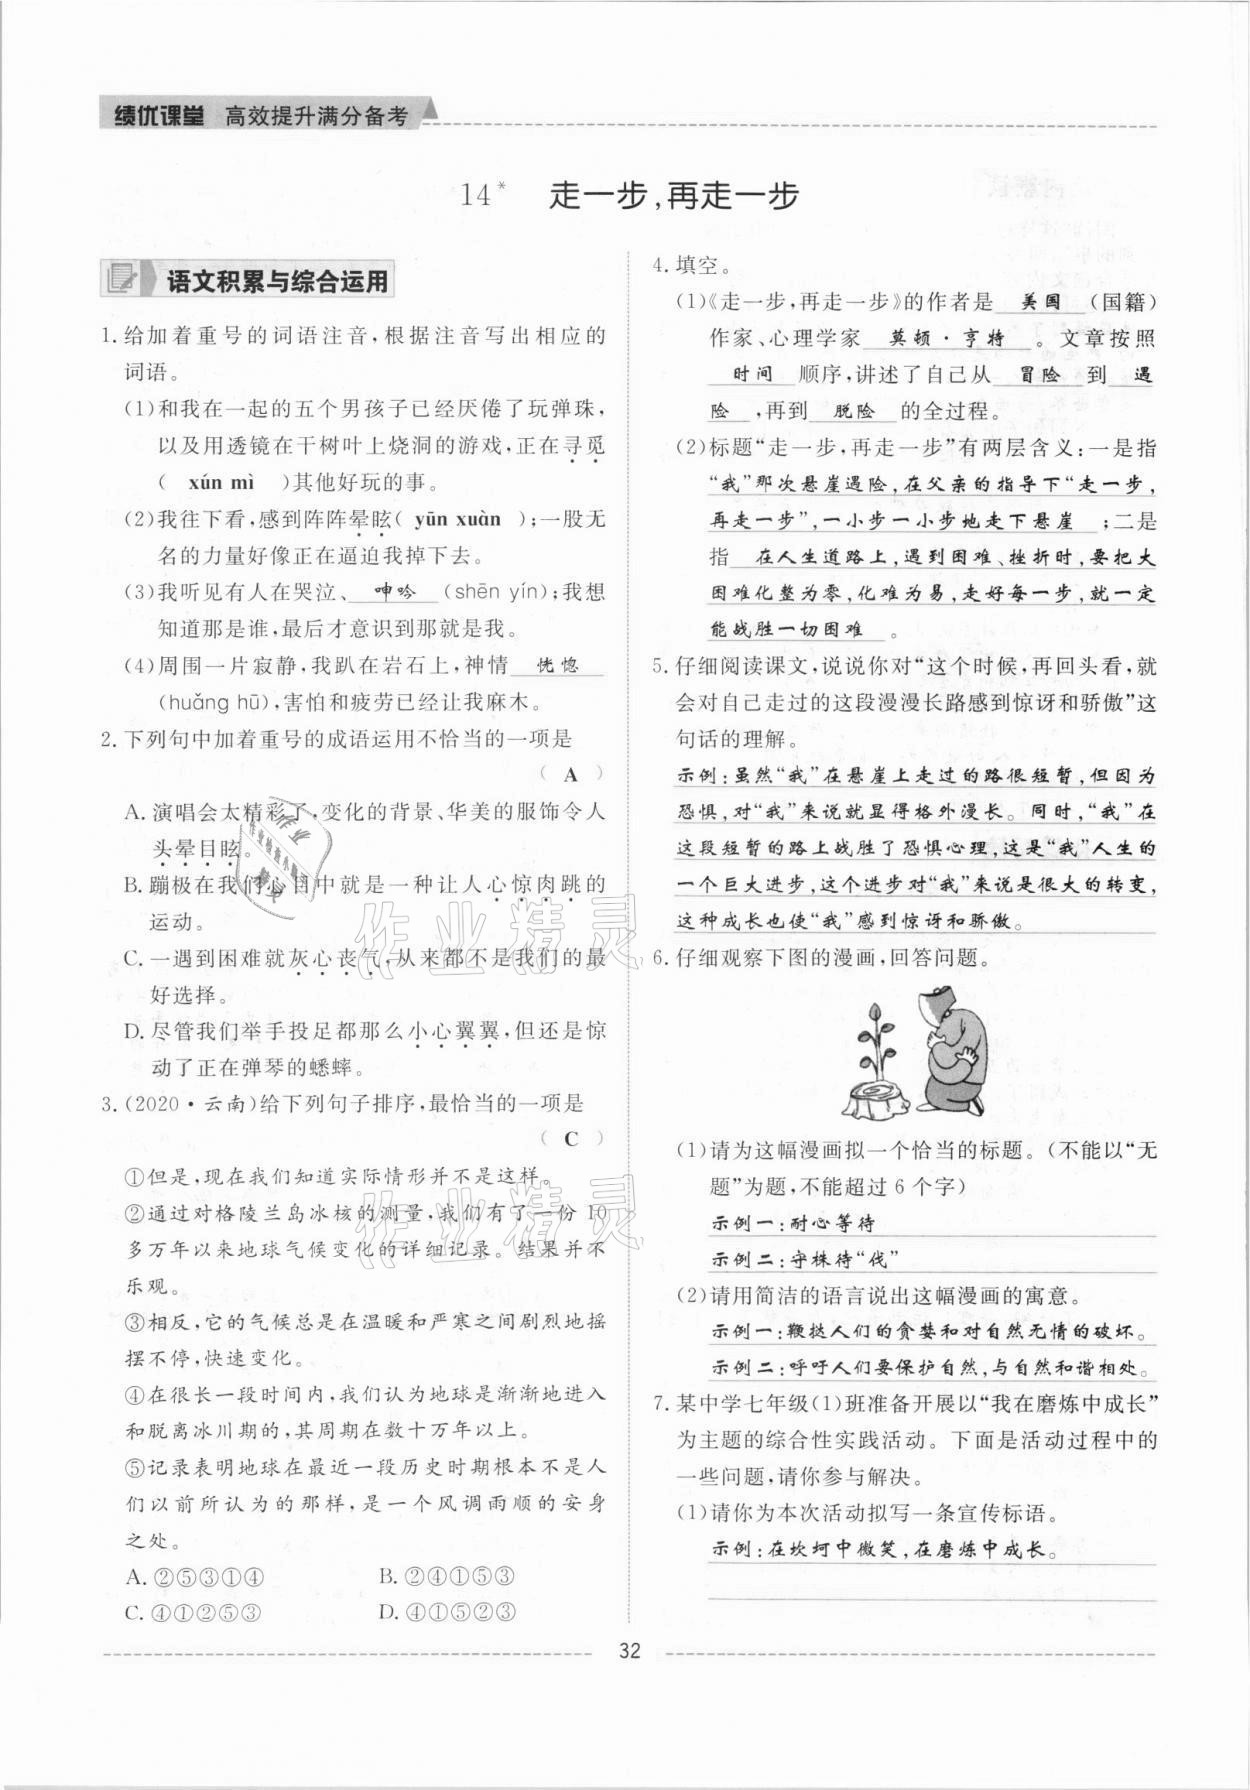 绩优课堂 高效提升满分备考
14* 走一步,再走一步
语文积累与综合运用
1. 给加着重号的词语注音,根据注音写出相应的
词语。
(1)和我在一起的五个男孩子已经厌倦了玩弹珠,
以及用透镜在干树叶上烧洞的游戏,正在寻觅
( xún mì )其他好玩的事。
(2)我往下看,感到阵阵晕眩( yūn xuàn );一股无
名的力量好像正在逼迫我掉下去。
(3)我听见有人在哭泣、 呻吟 (shēn yín);我想
知道那是谁,最后才意识到那就是我。
(4)周围一片寂静,我趴在岩石上,神情 恍惚
(huǎng hū),害怕和疲劳已经让我麻木。
2. 下列句中加着重号的成语运用不恰当的一项是
( A )
A. 演唱会太精彩了,变化的背景、华美的服饰令人
头晕目眩。
B. 蹦极在我们心目中就是一种让人心惊肉跳的
运动。
C. 一遇到困难就灰心丧气,从来都不是我们的最
好选择。
D. 尽管我们举手投足都那么小心翼翼,但还是惊
动了正在弹琴的蟋蟀。
3. (2020·云南)给下列句子排序,最恰当的一项是
( C )
①但是,现在我们知道实际情形并不是这样。
②通过对格陵兰岛冰核的测量,我们有了一份 10
多万年以来地球气候变化的详细记录。结果并不
乐观。
③相反,它的气候总是在温暖和严寒之间剧烈地摇
摆不停,快速变化。
④在很长一段时间内,我们认为地球是渐渐地进入
和脱离冰川期的,其周期在数十万年以上。
⑤记录表明地球在最近一段历史时期根本不是人
们以前所认为的那样,是一个风调雨顺的安身
之处。
A. ②⑤③①④ B. ②④①⑤③
C. ④①②⑤③ D. ④①⑤②③
4. 填空。
(1)《走一步,再走一步》的作者是 美国 (国籍)
作家、心理学家 莫顿·亨特 。文章按照
时间 顺序,讲述了自己从 冒险 到 遇
险 ,再到 脱险 的全过程。
(2)标题“走一步,再走一步”有两层含义:一是指
“我”那次悬崖遇险,在父亲的指导下“走一步,
再走一步”,一小步一小步地走下悬崖 ;二是
指 在人生道路上,遇到困难、挫折时,要把大
困难化整为零,化难为易,走好每一步,就一定
能战胜一切困难 。
5. 仔细阅读课文,说说你对“这个时候,再回头看,就
会对自己走过的这段漫漫长路感到惊讶和骄傲”这
句话的理解。
示例:虽然“我”在悬崖上走过的路很短暂,但因为
恐惧,对“我”来说就显得格外漫长。同时,“我”在
这段短暂的路上战胜了恐惧心理,这是“我”人生的
一个巨大进步,这个进步对“我”来说是很大的转变,
这种成长也使“我”感到惊讶和骄傲。
6. 仔细观察下图的漫画,回答问题。
(1)请为这幅漫画拟一个恰当的标题。(不能以“无
题”为题,不能超过 6 个字)
示例一:耐心等待
示例二:守株待“伐”
(2)请用简洁的语言说出这幅漫画的寓意。
示例一:鞭挞人们的贪婪和对自然无情的破坏。
示例二:呼吁人们要保护自然,与自然和谐相处。
7. 某中学七年级(1)班准备开展以“我在磨炼中成长”
为主题的综合性实践活动。下面是活动过程中的
一些问题,请你参与解决。
(1)请你为本次活动拟写一条宣传标语。
示例:在坎坷中微笑,在磨炼中成长。
32
作业精灵
作业精灵